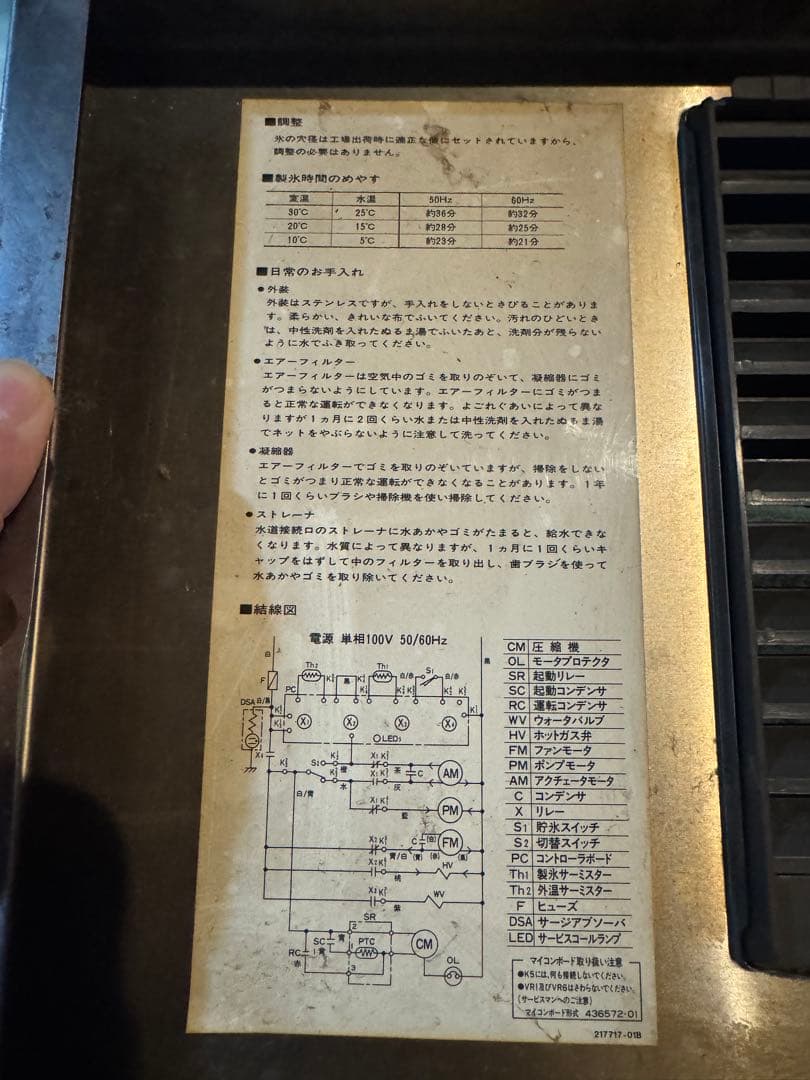 ■調整
氷の穴径は工場出荷時に適正な値にセットされていますから、
調整の必要はありません。
■製氷時間のめやす
室温 水温 50Hz 60Hz
30℃ 25℃ 約36分 約32分
20℃ 15℃ 約28分 約25分
10℃ 5℃ 約23分 約21分
■日常のお手入れ
●外装
外装はステンレスですが、手入れをしないとさびることがありま
す。柔らかい、きれいな布でふいてください。汚れのひどいとき
は、中性洗剤を入れたぬるま湯でふいたあと、洗剤分が残らない
ように水でふき取ってください。
●エアーフィルター
エアーフィルターは空気中のゴミを取りのぞいて、凝縮器にゴミ
がつまらないようにしています。エアーフィルターにゴミがつま
ると正常な運転ができなくなります。よごれぐあいによって異な
りますが1ヵ月に2回くらい水または中性洗剤を入れたぬるま湯
でネットをやぶらないように注意して洗ってください。
●凝縮器
エアーフィルターでゴミを取りのぞいていますが、掃除をしない
とゴミがつまり正常な運転ができなくなることがあります。1年
に1回くらいブラシや掃除機を使い掃除してください。
●ストレーナ
水道接続口のストレーナに水あかやゴミがたまると、給水できな
くなります。水質によって異なりますが、1ヵ月に1回くらいキ
ャップをはずして中のフィルターを取り出し、歯ブラジを使って
水あかやゴミを取り除いてください。
■結線図
電源 単相100V 50/60Hz
白
黒
F
Th2
Th1
S1
PC
黒
白/赤
白/赤
DSA
白/黒
X1
X2
X3
X4
LED1
X4
S2
橙
X1
茶
C
AM
白/青
水
X1
灰
X1
藍
PM
X2
C
(白)
FM
青/白
(青)
(赤)
(黒)
X2
桃
HV
X3
紫
WV
SR
2
SC
青
1
黄
PTC
CM
RC
赤
3
OL
CM 圧縮機
OL モータプロテクタ
SR 起動リレー
SC 起動コンデンサ
RC 運転コンデンサ
WV ウォータバルブ
HV ホットガス弁
FM ファンモータ
PM ポンプモータ
AM アクチェータモータ
C コンデンサ
X リレー
S1 貯氷スイッチ
S2 切替スイッチ
PC コントローラボード
Th1 製氷サーミスター
Th2 外温サーミスター
F ヒューズ
DSA サージアブソーバ
LED サービスコールランプ
マイコンボード取り扱い注意
●K5には、何も接続しないでください。
●VR1及びVR6はさわらないでください。
(サービスマンへのご注意)
マイコンボード形式 436572-01
217717-01B